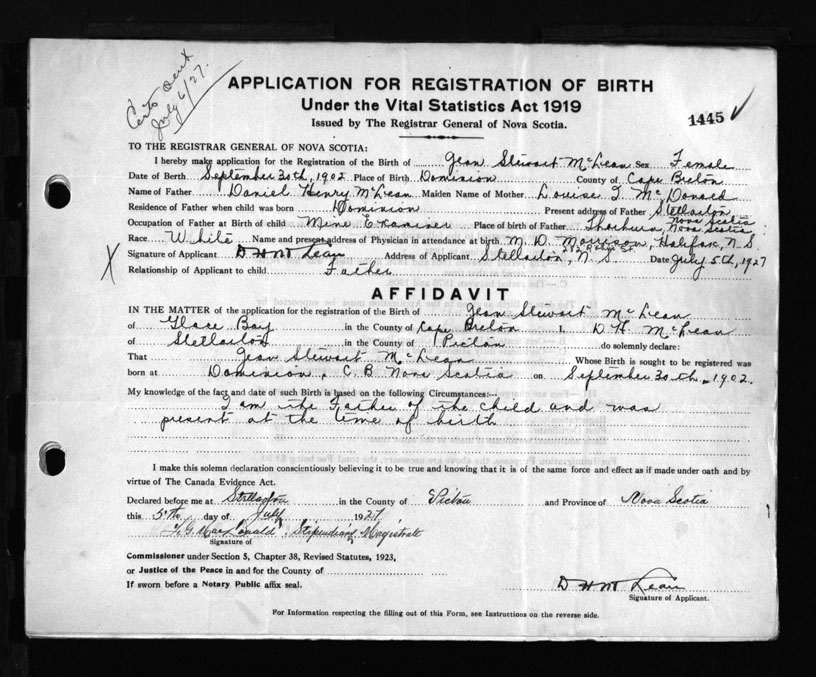 Certs sent
July 6/27.
APPLICATION FOR REGISTRATION OF BIRTH
Under the Vital Statistics Act 1919
Issued by The Registrar General of Nova Scotia.
1445 ✓
TO THE REGISTRAR GENERAL OF NOVA SCOTIA:
I hereby make application for the Registration of the Birth of Jean Stewart McLean Sex Female
Date of Birth September 30th, 1902 Place of Birth Dominion County of Cape Breton
Name of Father Daniel Henry McLean Maiden Name of Mother Louise J. McDonald
Residence of Father when child was born Dominion Present address of Father Stellarton Nova Scotia
Occupation of Father at Birth of child Mine Examiner Place of birth of Father Thorburn, Nova Scotia
Race White Name and present address of Physician in attendance at birth M. D. Morrison, Halifax, N. S.
X Signature of Applicant D H McLean Address of Applicant Stellarton, N. S. Date July 5th, 1927
Relationship of Applicant to child Father
AFFIDAVIT
IN THE MATTER of the application for the registration of the Birth of Jean Stewart McLean
of Glace Bay in the County of Cape Breton I, D. H. McLean
of Stellarton in the County of Pictou do solemnly declare:
That Jean Stewart McLean Whose Birth is sought to be registered was
born at Dominion, C. B. Nova Scotia on September 30th, 1902.
My knowledge of the fact and date of such Birth is based on the following Circumstances:—
I am the Father of the child and was
present at the time of birth
I make this solemn declaration conscientiously believing it to be true and knowing that it is of the same force and effect as if made under oath and by
virtue of The Canada Evidence Act.
Declared before me at Stellarton in the County of Pictou and Province of Nova Scotia
this 5th day of July 1927
G. MacDonald, Stipendiary Magistrate
Signature of
Commissioner under Section 5, Chapter 38, Revised Statutes, 1923,
or Justice of the Peace in and for the County of
If sworn before a Notary Public affix seal.
D H McLean
Signature of Applicant.
For Information respecting the filling out of this Form, see Instructions on the reverse side.